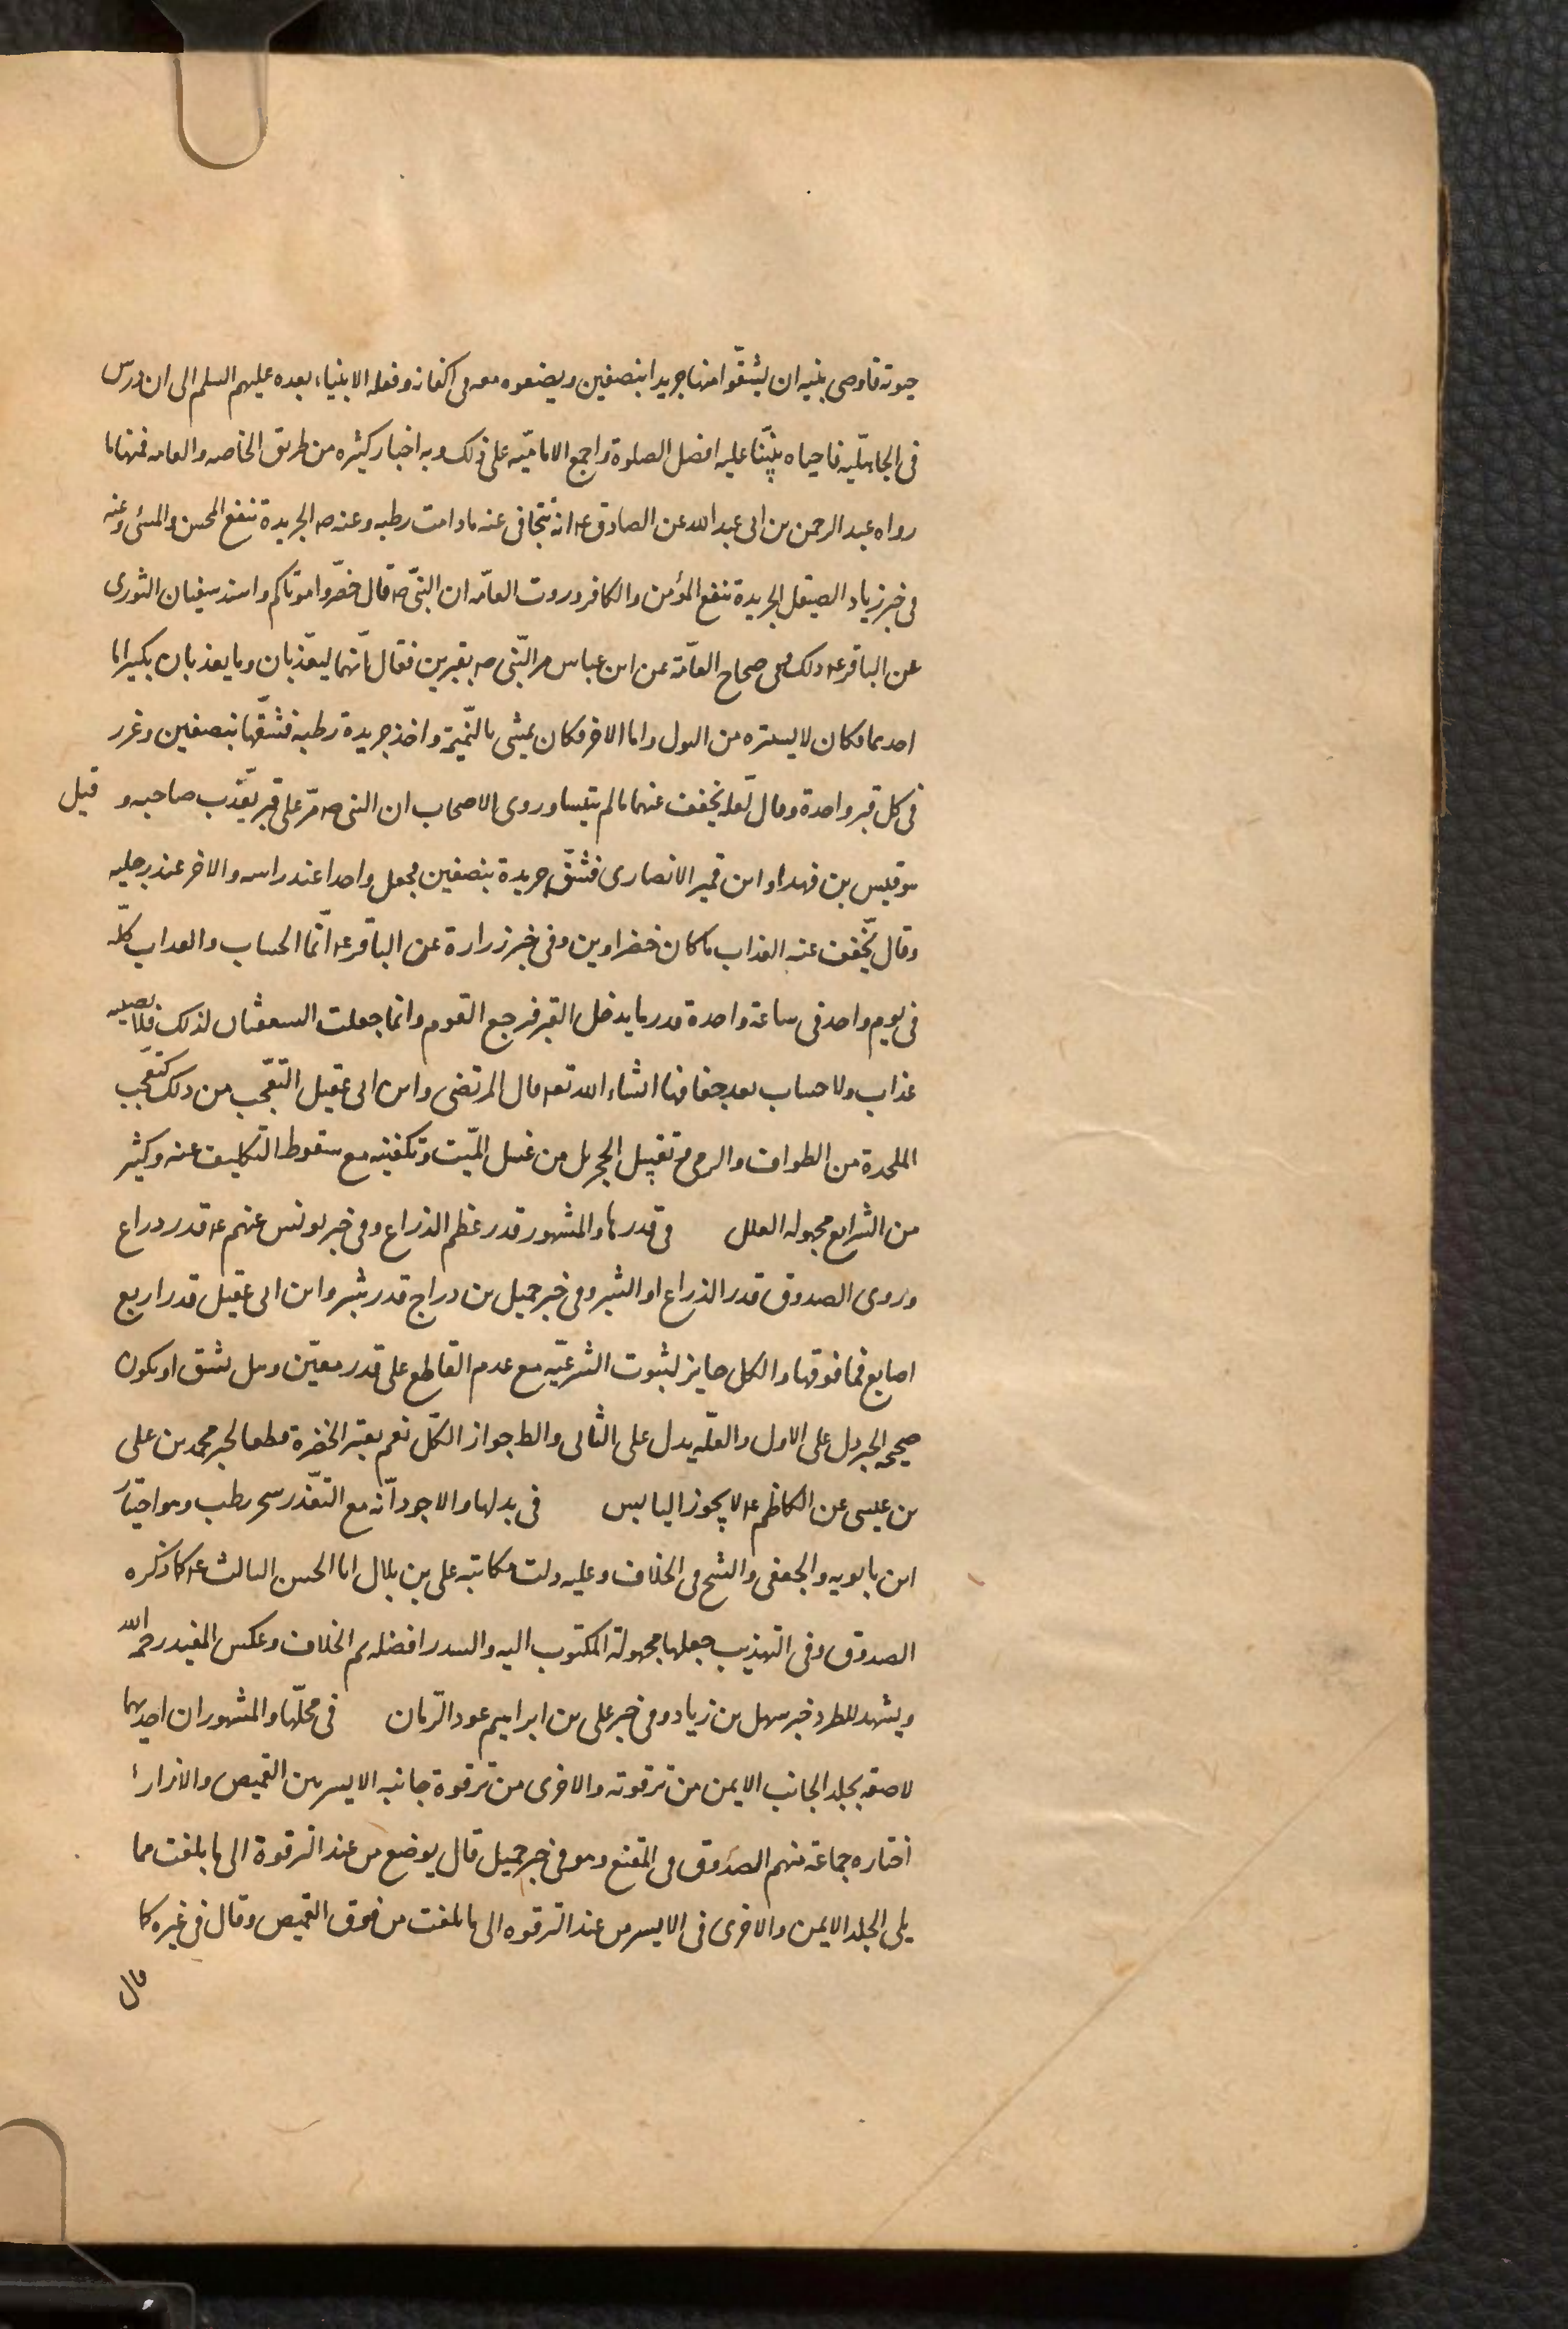 حيوته فاوصى بنيه ان يشقّوا منها جريدا بنصفين ويضعوه معه فى اكفانه وفعله الانبياء بعده عليهم السلم الى ان درس
فى الجاهليّه فاحياه نبيّنا عليه افضل الصلوة واجمع الاماميّه على ذلك وبه اخبار كثيره من طريق الخاصه والعامه فمنها ما
رواه عبد الرحمن بن ابى عبد الله عن الصادق ع انه يتجافى عنه ما دامت رطبه وعنه ص الجريدة تنفع المحسن والمسئ وعنه
فى خبر زياد الصيقل الجريدة تنفع المؤمن والكافر وروت العامّه ان النبىّ ص قال خضّروا موتاكم واسند سفيان الثورى
عن الباقر ع ذلك وفى صحاح العامّة عن ابن عباس مر النّبى ص بقبرين فقال انّهما ليعذّبان وما يعذبان بكبير اما
احدهما فكان لا يستتره من البول واما الاخر فكان يمشى بالنّميمة واخذ جريدة رطبه فشقّها بنصفين وغرر
فى كل قبر واحدة وقال لعلّه يخفف عنهما ما لم ييبسا وروى الاصحاب ان النبى ص مرّ على قبر يعذّب صاحبه و قيل
هو قيس بن فهد او ابن قمير الانصارى فشقّ جريدة بنصفين فجعل واحدا عند راسه والاخر عند رجليه
وقال يخّفف عنه العذاب ما كان خضراوين وفى خبر زرارة عن الباقر ع انّما الحساب والعداب كلّه
فى يوم واحد فى ساعة واحدة قدر ما يدخل القبر فرجع القوم وانما جعلت السعفتان لذلك فلا يصيبه
عذاب ولا حساب بعد جفافها انشاء الله تع قال المرتضى وابن ابى عقيل التعّجب من ذلك كتعّجب
الملحدة من الطواف والرمى و تقبيل الحجر بل من غسل الميّت وتكفينه مع سقوط التكليف عنه وكثير
من الشرايع مجهوله العلل فى قدرها والمشهور قدر عظم الذراع وفى خبر يونس عنهم ع قدر دراع
وروى الصدوق قدر الذراع او الشبر وفى خبر جميل بن دراج قدر شبر وابن ابى عقيل قدر اربع
اصابع فما فوقها والكل جايز لثبوت الشرعيّه مع عدم القاطع على قدر معيّن وهل تشق او تكون
صحيحه الخبر دل على الاول والعلّه يدل على الثانى والط جواز الكّل نعم يعتبر الخضرة قطعا لخبر محمد بن على
بن عيسى عن الكاظم ع لا يجوز اليابس فى بدلها والاجود انّه مع التعّذر شجر رطب وهو اختيار
ابن بابويه والجعفى والشيخ فى الخلاف وعليه دلت مكاتبه على بن بلال ابا الحسن الثالث ع كما ذكره
الصدوق وفى التهذيب جعلها مجهولة المكتوب اليه والسدر افضله ثم الخلاف وعكس المفيد رحمه الله
ويشهد للطرد خبر سهل بن زياد وفى خبر على بن ابراهيم عود الرّمان فى محلّها والمشهور ان احديهما
لاصقه بجلد الجانب الايمن من ترقوته والاخرى من ترقوة جانبه الايسر بين القميص والازار
اختاره جماعة منهم الصدوق فى المقنع وهو فى خبر جميل قال يوضع من عند الترقوة الى ما بلغت مما
يلى الجلد الايمن والاخرى فى الايسر من عند الترقوه الى ما بلغت من فوق القميص وقال فى غيره كما
قال